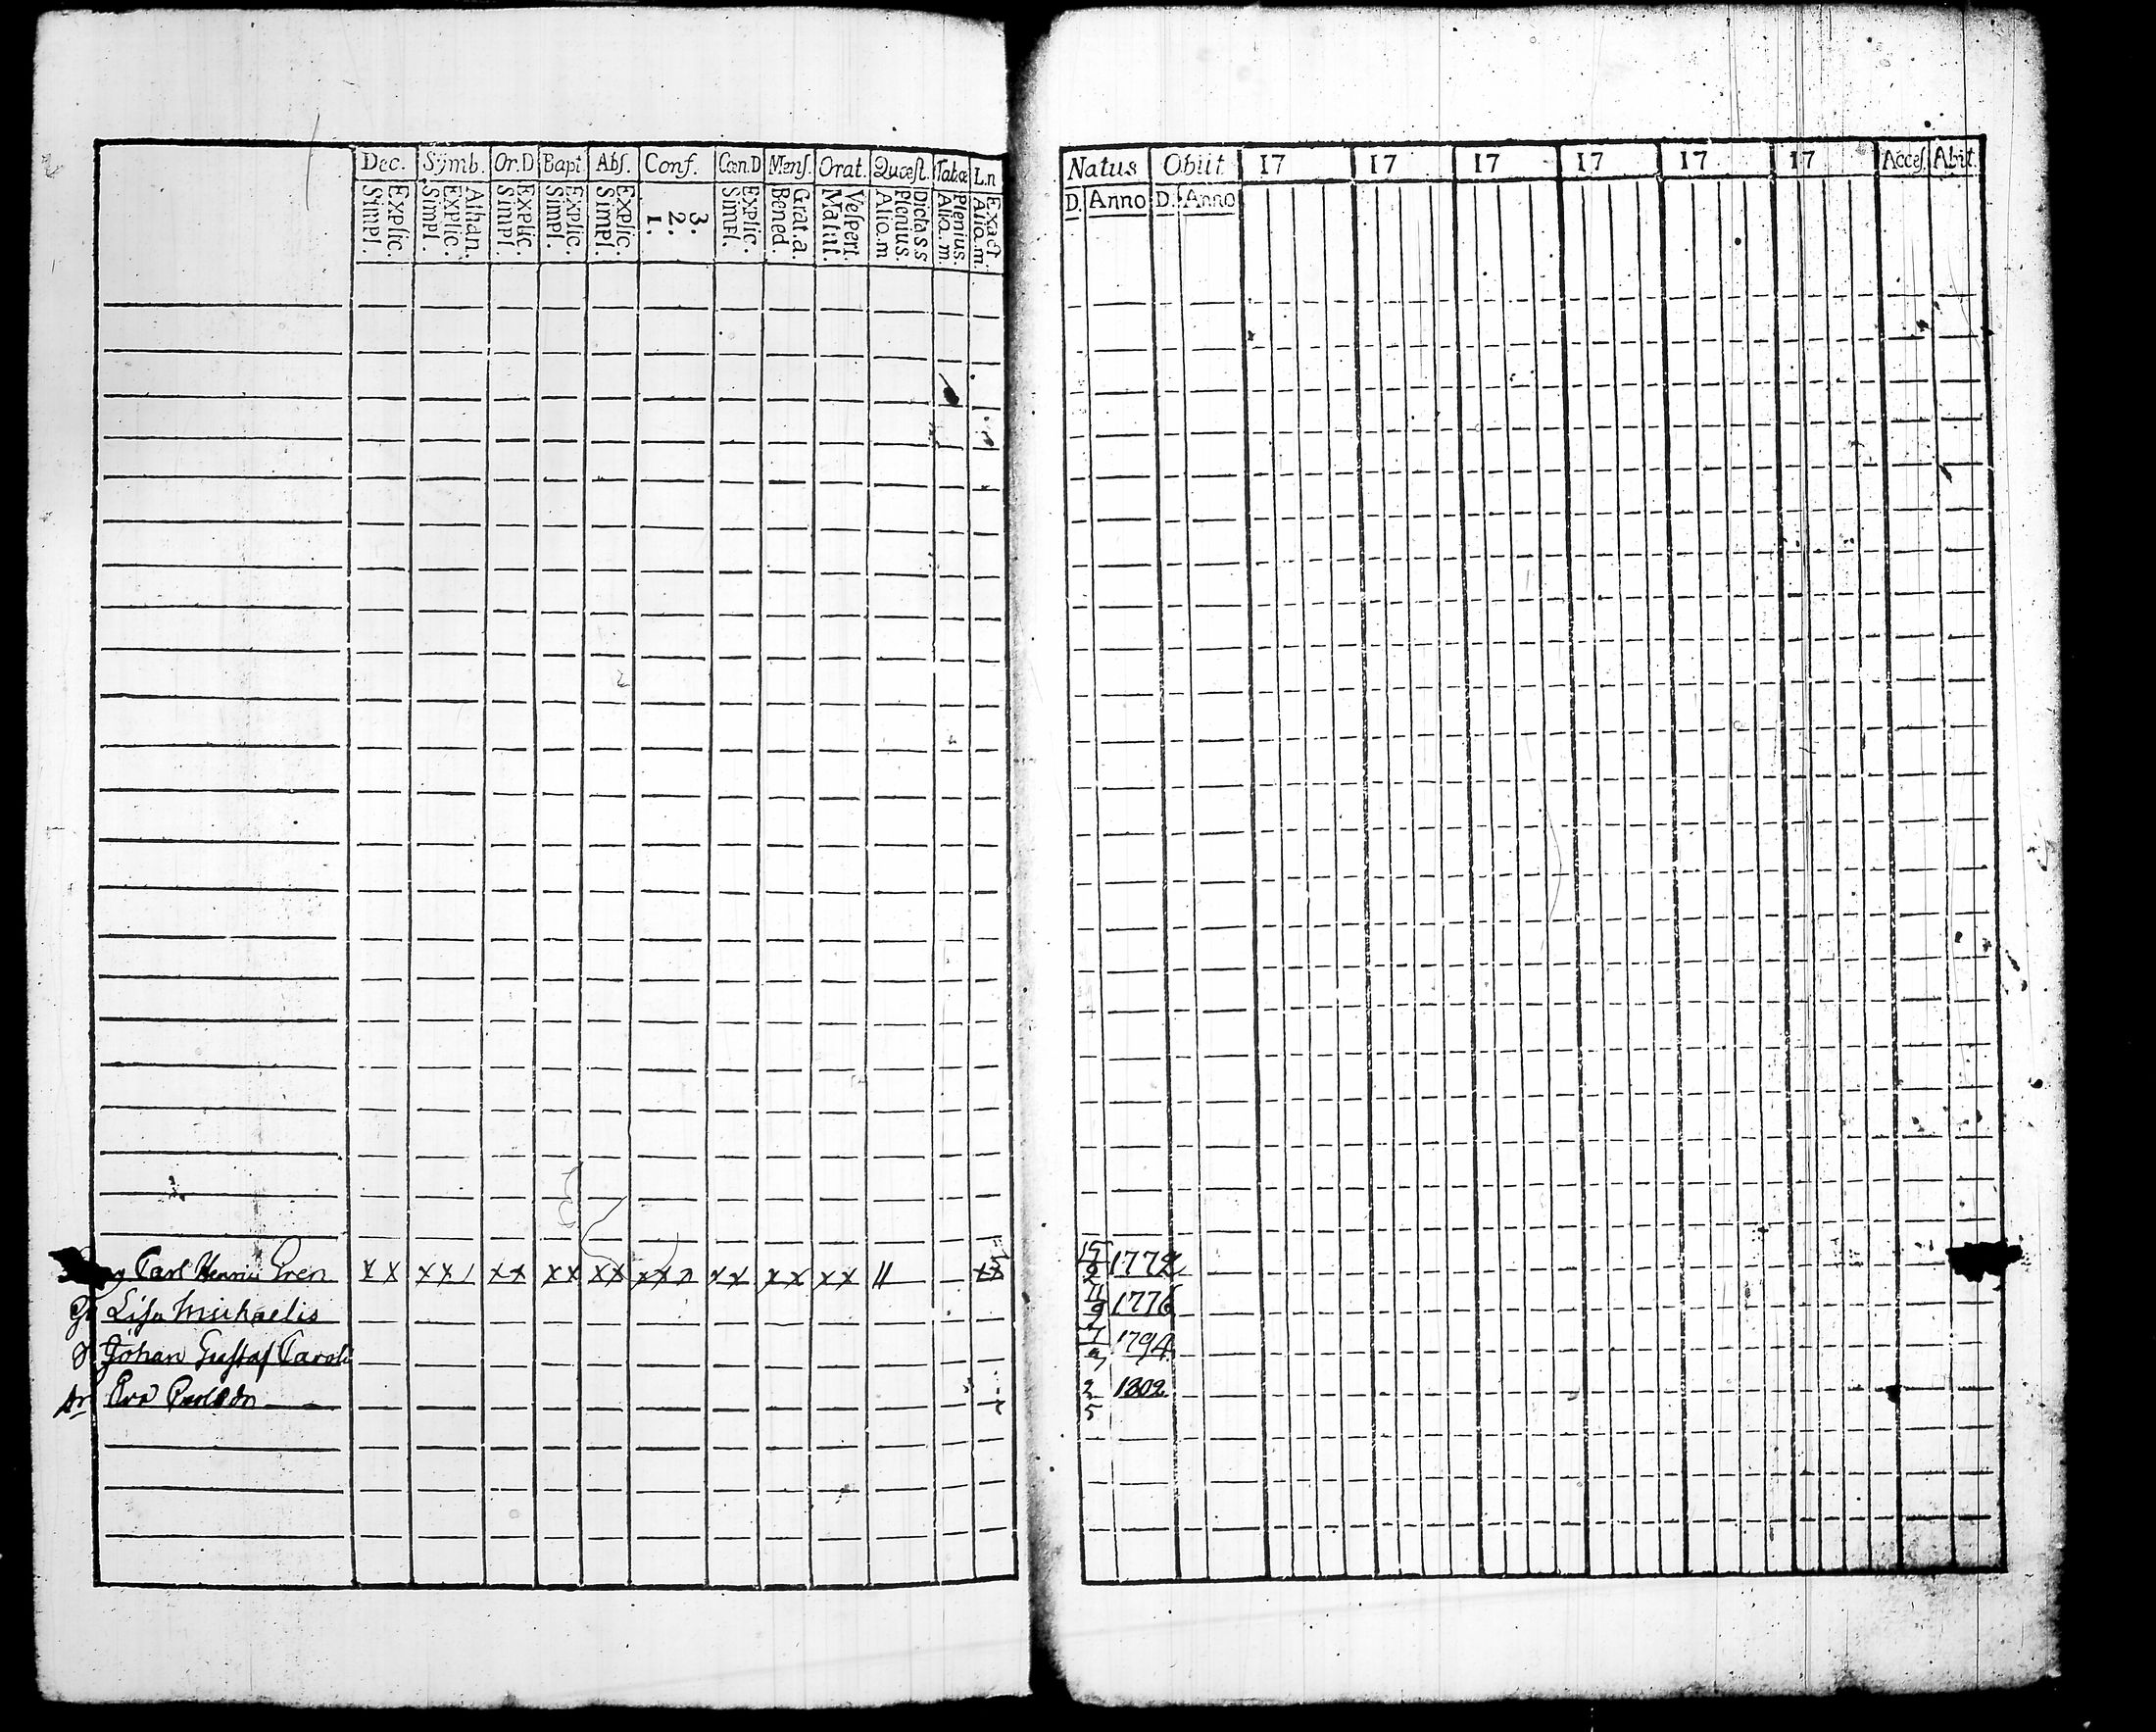 Dec. Symb. Or.D Bapt. Abs. Conf. Cœn.D Mens. Orat. Quæst. Tabæ Ln
Explic. Simpl. Athan. Explic. Simpl. Explic. Simpl. Explic. Simpl. Explic. Simpl. 3. 2. 1. Explic. Simpl. Grat.a. Bened. Vespert. Matut. Dicta s s Plenius. Alio.m Plenius. Alia.m. Exact Alia.m.
Carl Henric Gren x x x x / x x x x x x x x x x x x x x x ||
Lisa Michaelis
Johan Gustaf Caroli
Eva
Natus Obiit 17 17 17 17 17 17 Acces. Abit.
D. Anno D. Anno
1772
11/9 1776
1794
2/5 1802